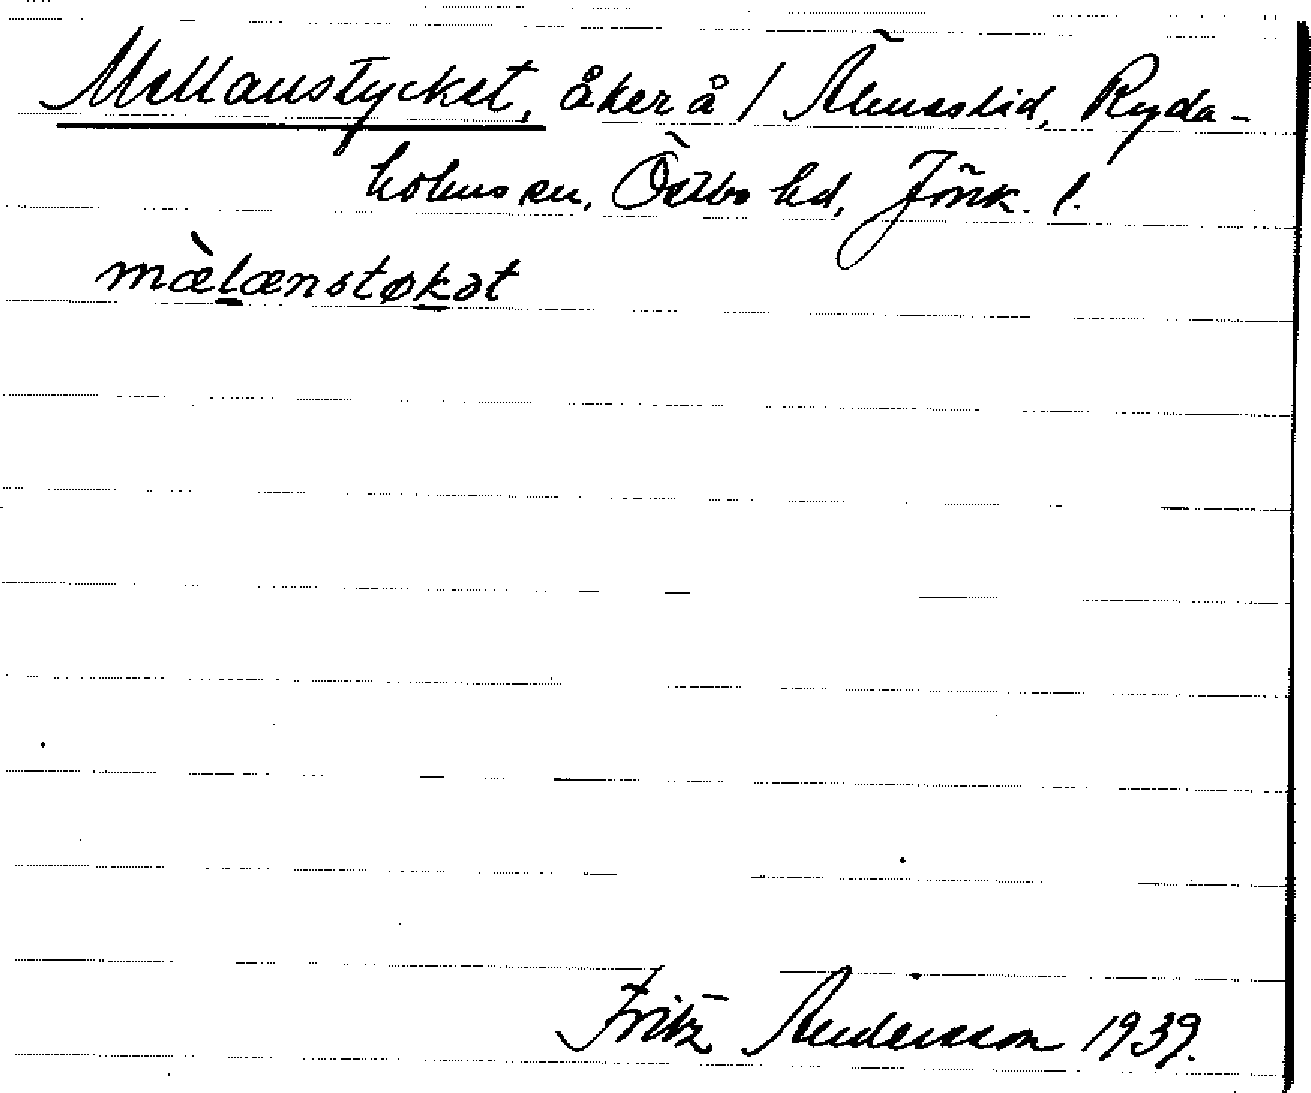 Mellanstycket, åker å 1 Älmås lid, Ryda-
holms sn, Östbo hd, Jönk. l.
mæ̀lænstøkət
Fritz Andersson 1939.